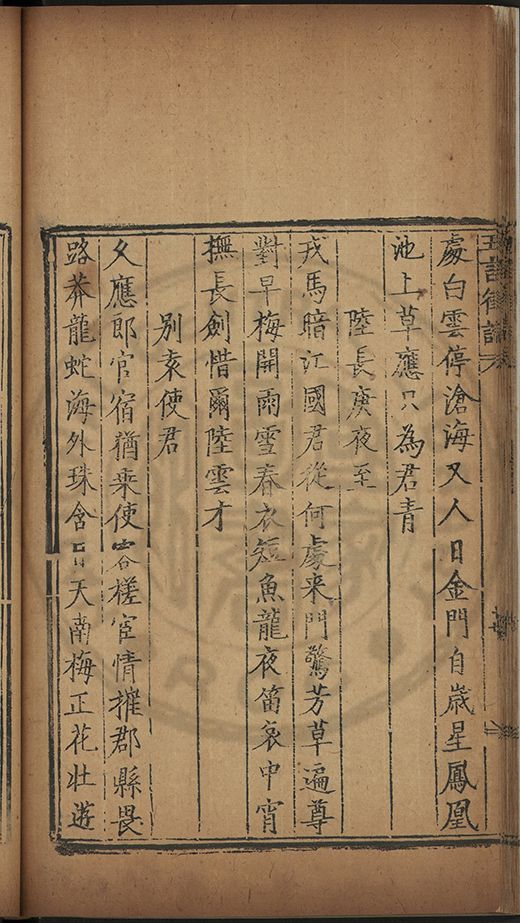 處白雲停滄海又人日金門自歳星鳳凰
池上草應只為君青
陸長庚夜至
戎馬暗江國君從何處来門驚芳草遍尊
對早梅開雨雪春衣短魚龍夜笛哀中宵
撫長劍惜爾陸雲才
別袁使君
久應郎官宿猶乗使客槎宦情摧郡縣畏
路莽龍蛇海外珠含月天南梅正花壮遊